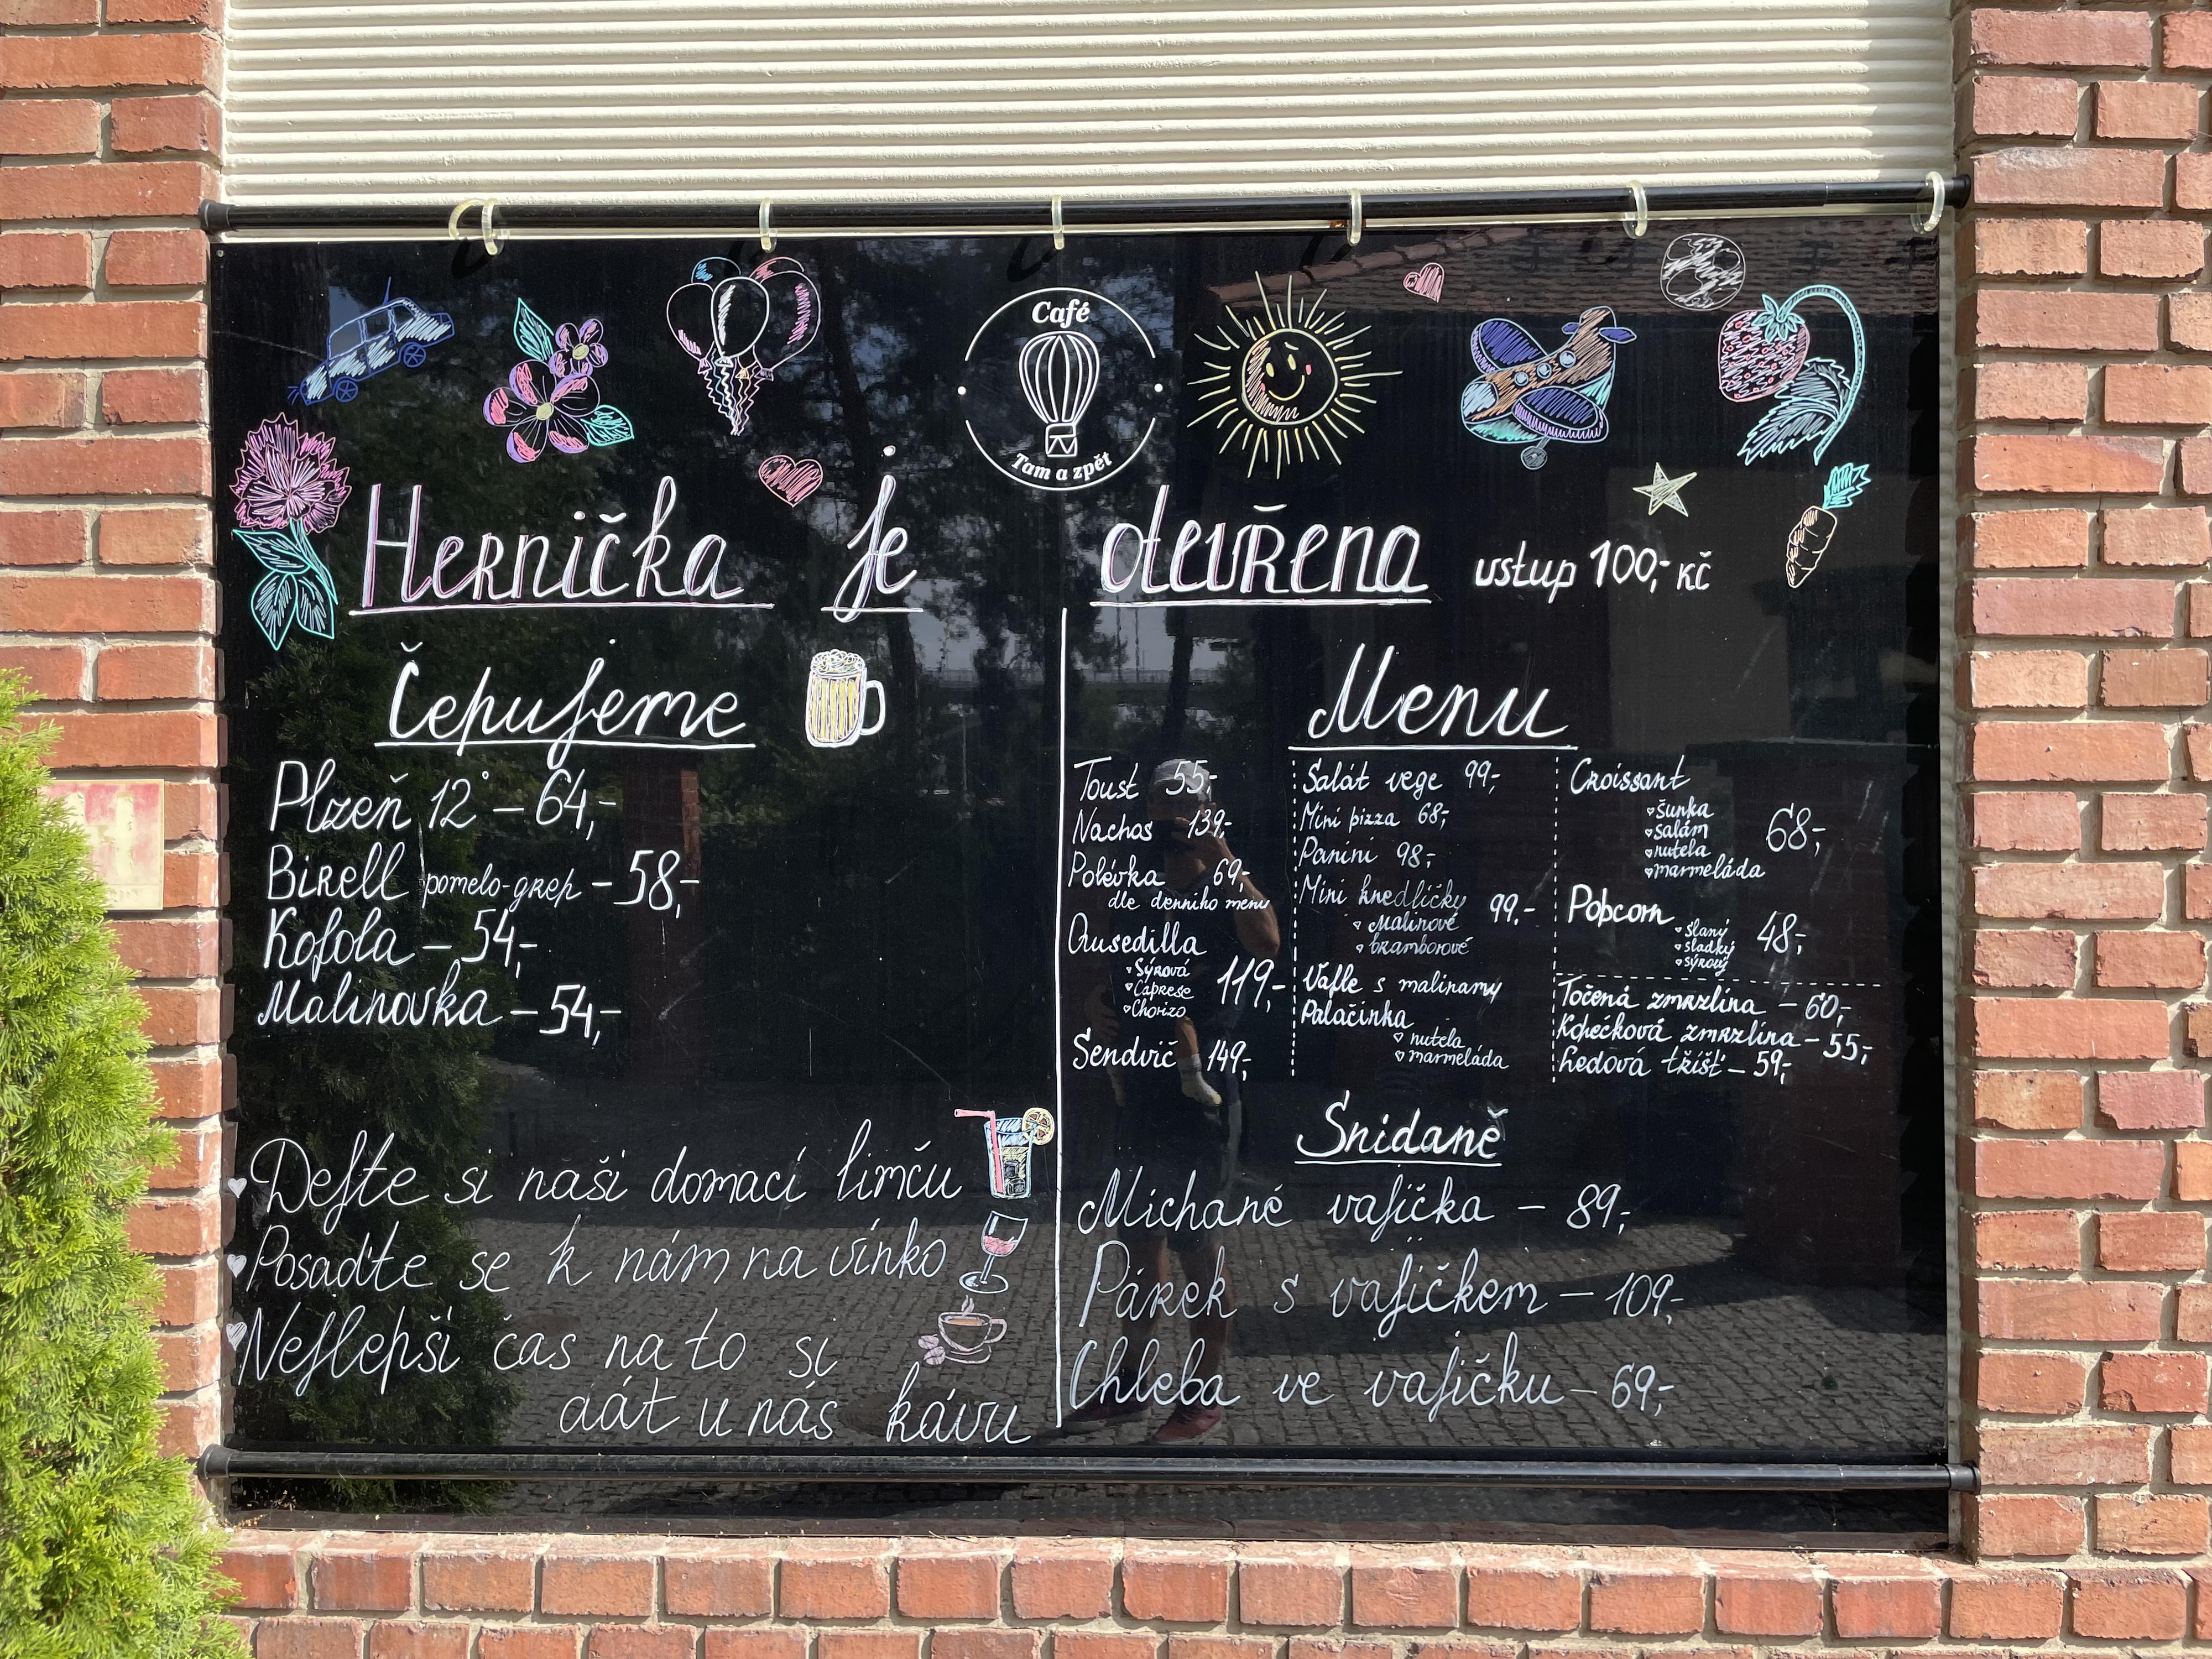 Café
Tam a zpět
Hernička je otevřena vstup 100,- Kč
Čepujeme
Plzeň 12° – 64,-
Birell pomelo-grep – 58,-
Kofola – 54,-
Malinovka – 54,-
Dejte si naši domací limču
Posaďte se k nám na vínko
Nejlepší čas na to si
dát u nás kávu
Menu
Toust 55,-
Nachos 139,-
Polévka 69,-
dle denního menu
Qusedilla
Sýrová
Caprese
Chorizo
119,-
Sendvič 149,-
Salát vege 99,-
Mini pizza 68,-
Panini 98,-
Mini knedlíčky
Malinové
bramborové
99,-
Vafle s malinamy
Palačinka
nutela
marmeláda
Croissant
šunka
salám
nutela
marmeláda
68,-
Popcorn
slaný
sladký
sýrový
48,-
Točená zmrzlina – 60,-
Kopečková zmrzlina – 55,-
Ledová tříšť – 59,-
Snídaně
Míchané vajíčka – 89,-
Párek s vajíčkem – 109,-
Chleba ve vajíčku – 69,-